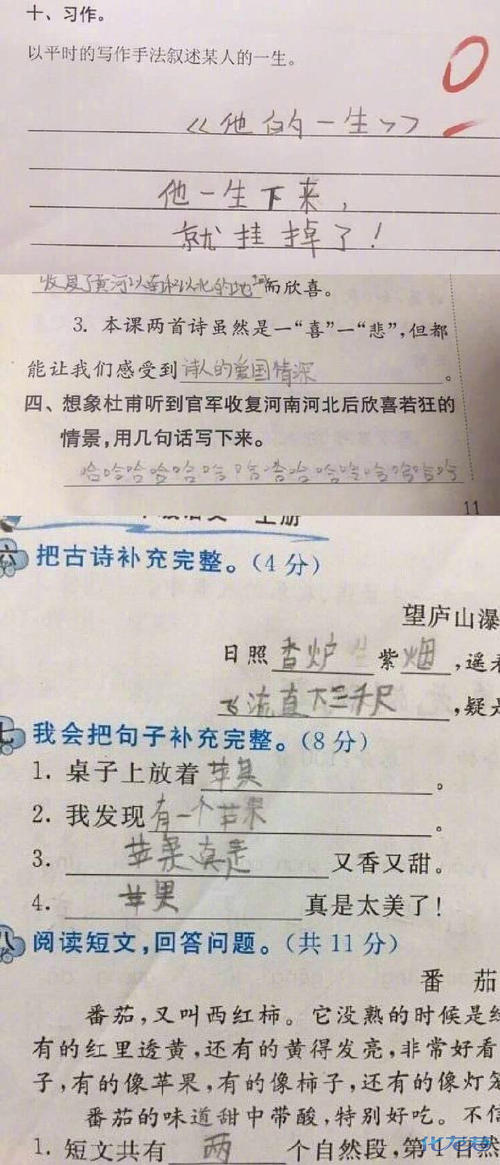 十、习作。
以平时的写作手法叙述某人的一生。
0
《他的一生》
他一生下来，
就挂掉了！
收复了黄河以南和以北的地 而欣喜。
3. 本课两首诗虽然是一“喜”一“悲”，但都
能让我们感受到诗人的爱国情深。
四、想象杜甫听到官军收复河南河北后欣喜若狂的
情景，用几句话写下来。
哈哈哈哈哈哈哈哈哈哈哈哈哈哈哈
11
上册
六 把古诗补充完整。（4分）
望庐山瀑
日照香炉生紫烟，遥看
飞流直下三千尺，疑是
七 我会把句子补充完整。（8分）
1. 桌子上放着苹果。
2. 我发现有一个苹果。
3. 苹果真是又香又甜。
4. 苹果真是太美了！
八 阅读短文，回答问题。（共11分）
番茄
番茄，又叫西红柿。它没熟的时候是绿
有的红里透黄，还有的黄得发亮，非常好看
子，有的像苹果，有的像柿子，还有的像灯笼
番茄的味道甜中带酸，特别好吃。不信
1. 短文共有两个自然段，第